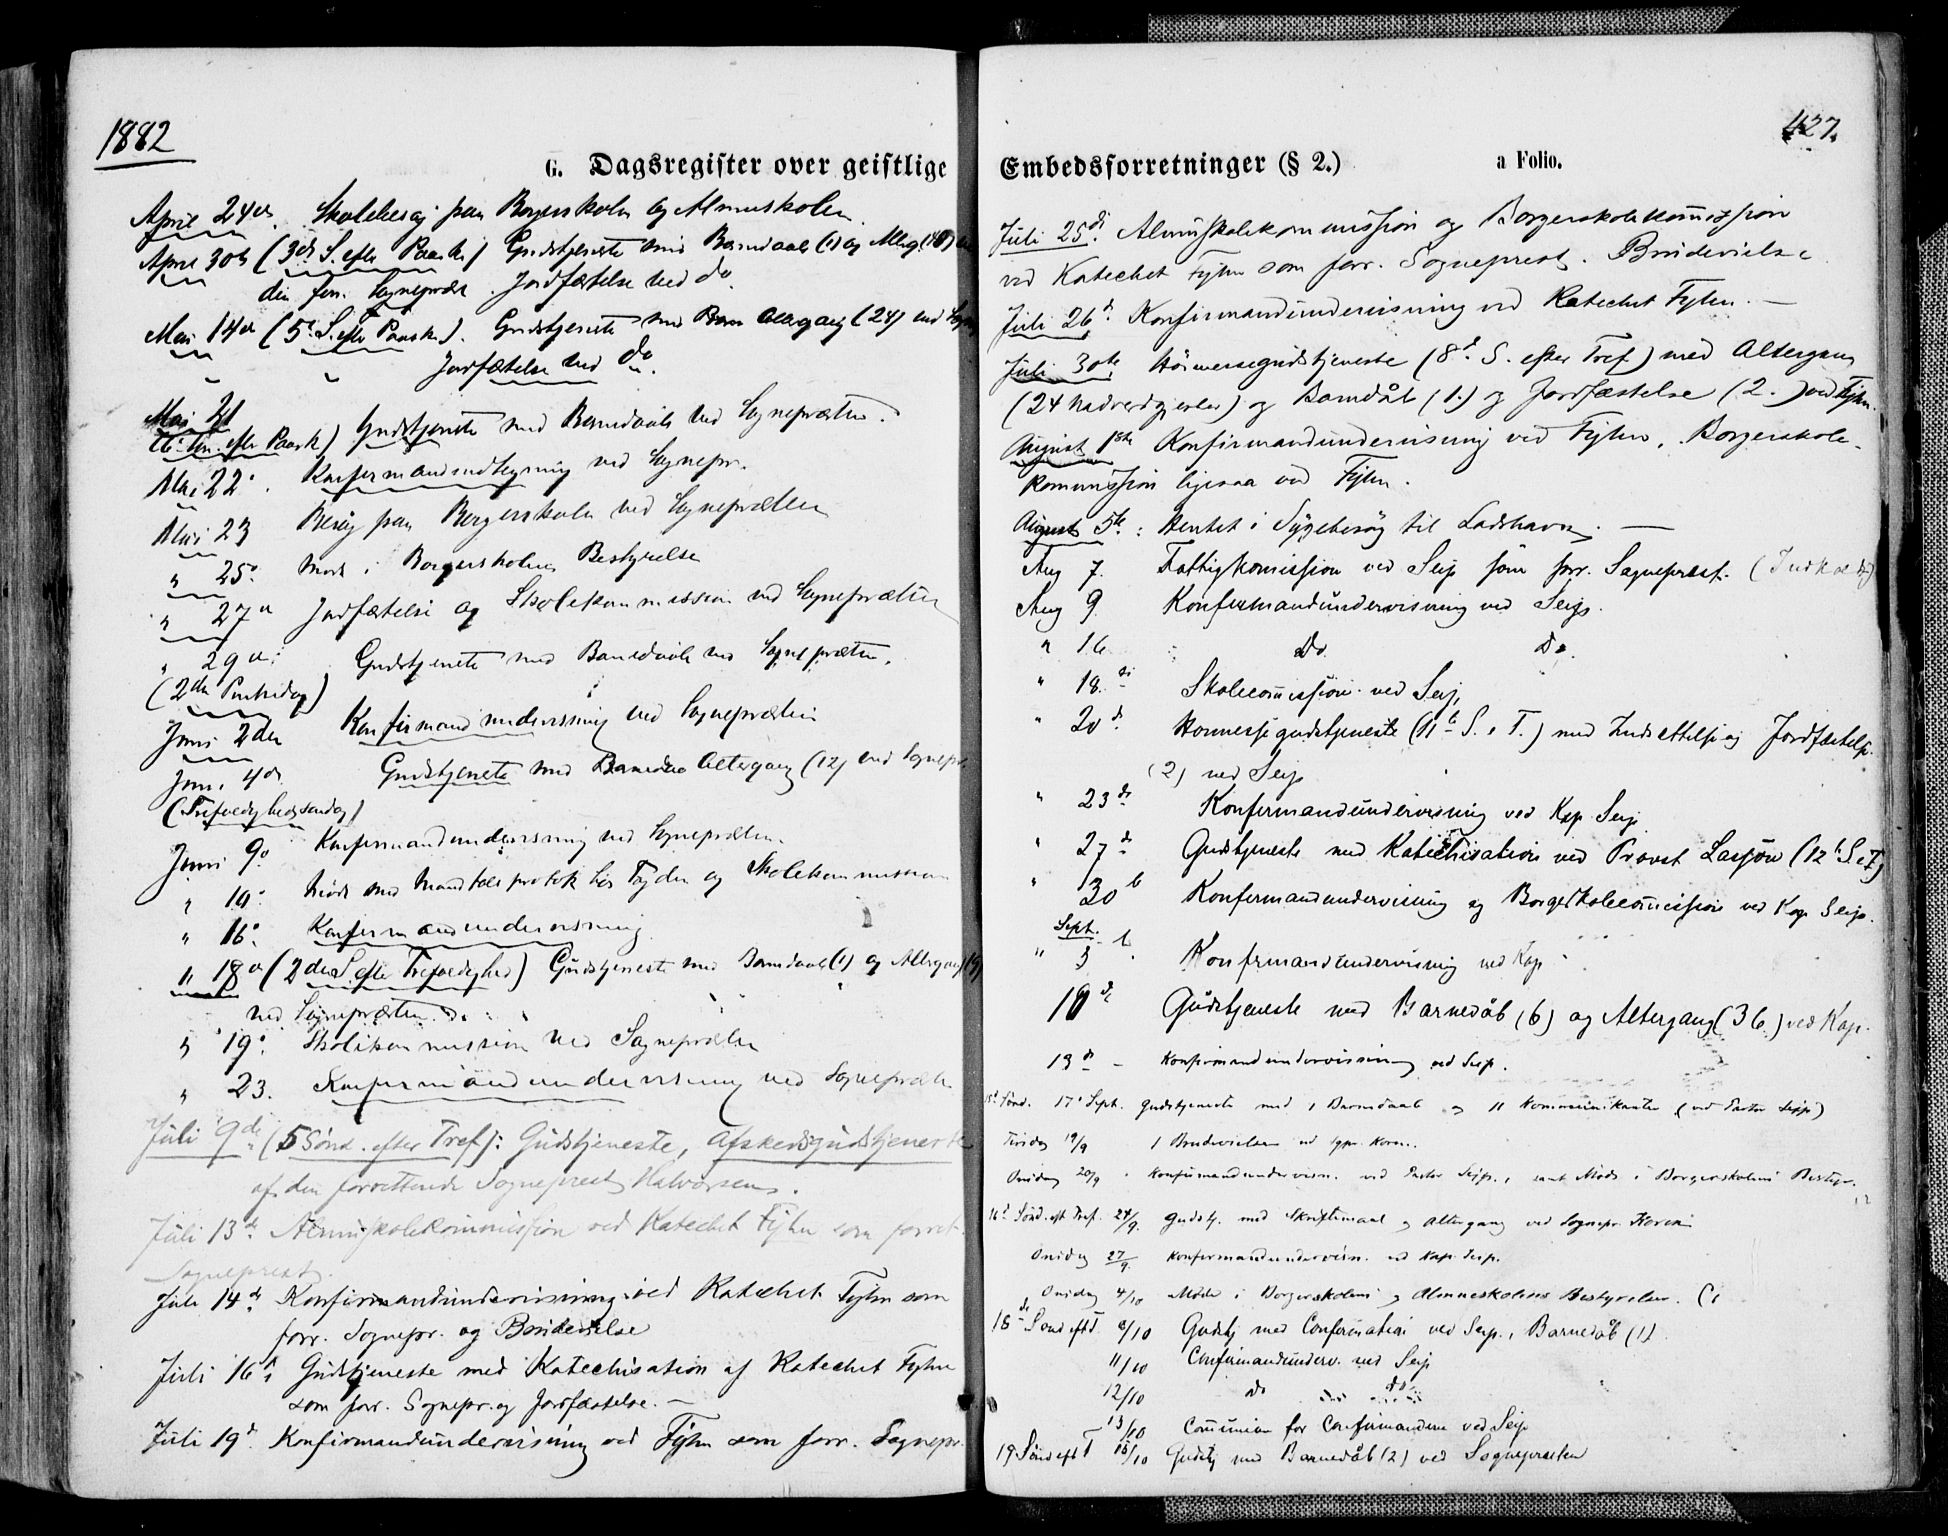 1882
G. Dagsregister over geistlige
April 24de. Skolebesøg paa Borgerskolen og Almueskolen.
April 30te (3die S. efter Paaske) Gudstjeneste med Barnedaab (1) og Alterg. (18)
den forr. Sognepræst. Jordfæstelse ved do.
Mai 14de (5te S. efter Paaske). Gudstjeneste med Altergang (24) ved
Jordfæstelse ved do.
Mai 21
(6te Sn. efter Paaske) Gudstjeneste med Barnedaab ved Sognepræsten.
Mai 22. Konfirmand ved Sognepr.
Mai 23 Besøg paa Borgerskolen ved Sognepræsten
" 25. Møde i Borgerskolens Bestyrelse
" 27de Jordfæstelse og Skolekommission ved Sognepræsten
" 29de: Gudstjeneste med Barnedaab ved Sognepræsten.
(2den Pintsedag)
Juni 2den Konfirmandundervisning ved Sognepræsten
Juni 4de Gudstjeneste med Altergang (12) ved Sognepr.
(Trefoldighedssøndag)
Juni 9. Konfirmandundervisning ved Sognepræsten.
" 10. Møde med hos Fogden og Skolekommission
" 16. Konfirmandundervisning
" 18de (2den S. efter Trefoldighed) Gudstjeneste med Barnedaab (1) og Altergang
ved Sognepræsten.
" 19. Skolekommission ved Sognepræsten
" 23. Konfirmandundervisning ved Sognepræsten
Juli 9de (5 Sønd. efter Tref): Gudstjeneste, Afskedsgudstjeneste
af den forrettende Sogneprest Halvorsen.
Juli 13de Almuskolekommission ved Katechet Fyhn som forret.
Sogneprest.
Juli 14de Konfirmandundervisning ved Katechet Fyhn som
forr. Sognepr. og Brudevielse
Juli 16de Gudstjeneste med Katechisation af Katechet Fyhn
som forr. Sognepr. og Jordfæstelse. —
Juli 19de Konfirmandundervisning ved Fyhn som forr. Sognepr.
427.
Embedsforretninger (§ 2.) a Folio.
Juli 25de. Almuskolekommission og Borgerskolekommission
ved Katechet Fyhn som forr. Sogneprest. Brudevielse
Juli 26de Konfirmandundervisning ved Katechet Fyhn. —
Juli 30te Høimessegudstjeneste (8de S. efter Tref) med Altergang
(24 Nadverdgjester) og Barndåb (1.) og Jordfæstelse (2.) ved Fyhn.
August 1ste Konfirmandundervisning ved Fyhn. Borgerskole-
kommission ligesaa ved Fyhn.
August 5te: Hentet i Sygebesøg til Ladshavn. —
Aug 7. Fattigkomission ved Seip som forr. Sogneprest.
Aug 9. Konfirmandundervisning ved Seip.
" 16 Do. Do.
" 18de Skolecomission ved Seip
" 20de Høimessegudstjeneste (11te S. e. T.) med Indsættelse og Jordfæstelse
(2) ved Seip
" 23de Konfirmandundervisning ved Kap. Seip
" 27de Gudstjeneste med Katechisation ved Provst Lassen (12te S. e T.)
" 30te Konfirmandundervisning og Borgerskolecomission ved Kap. Seip.
Sept.
" 3 Konfirmandundervisning ved Kap.
10de Gudstjeneste med Barnedåb (6) og Altergang (36.) ved Kap.
13de – Konfirmandundervisning ved Seip.
15de Sønd. 17de Sept. Gudstjeneste med 1 Barnedaab og 11 Kommunikanter (ved Pastor Seip)
Tirsdag 19/9 1 Brudevielse ved Sgpr. Koren.
Onsdag 20/9. Konfirmandundervisn. ved Pastor Seip, samt Møde i Borgerskolens Bestyr.
16de Sønd. eft Tref. 24/9. Gudstj. med Skriftemaal og Altergang ved Sognepr. Koren
Onsdag 27/9. Konfirmandundervisn. ved Kap. Seip.
Onsdag 4/10 Møde i Borgerskolens og Almueskolens Bestyrelse.
18de Sønd eft T. 8/10 Gudstj med Confirmation ved Seip, Barnedåb (1)
11/10 Confirmandunderv. ved Seip
12/10 do do
13/10 Communion for Confirmanderne ved Seip
19 Sønd eft T 15/10 Gudstj med Barnedåb (2) ved Sognepræsten